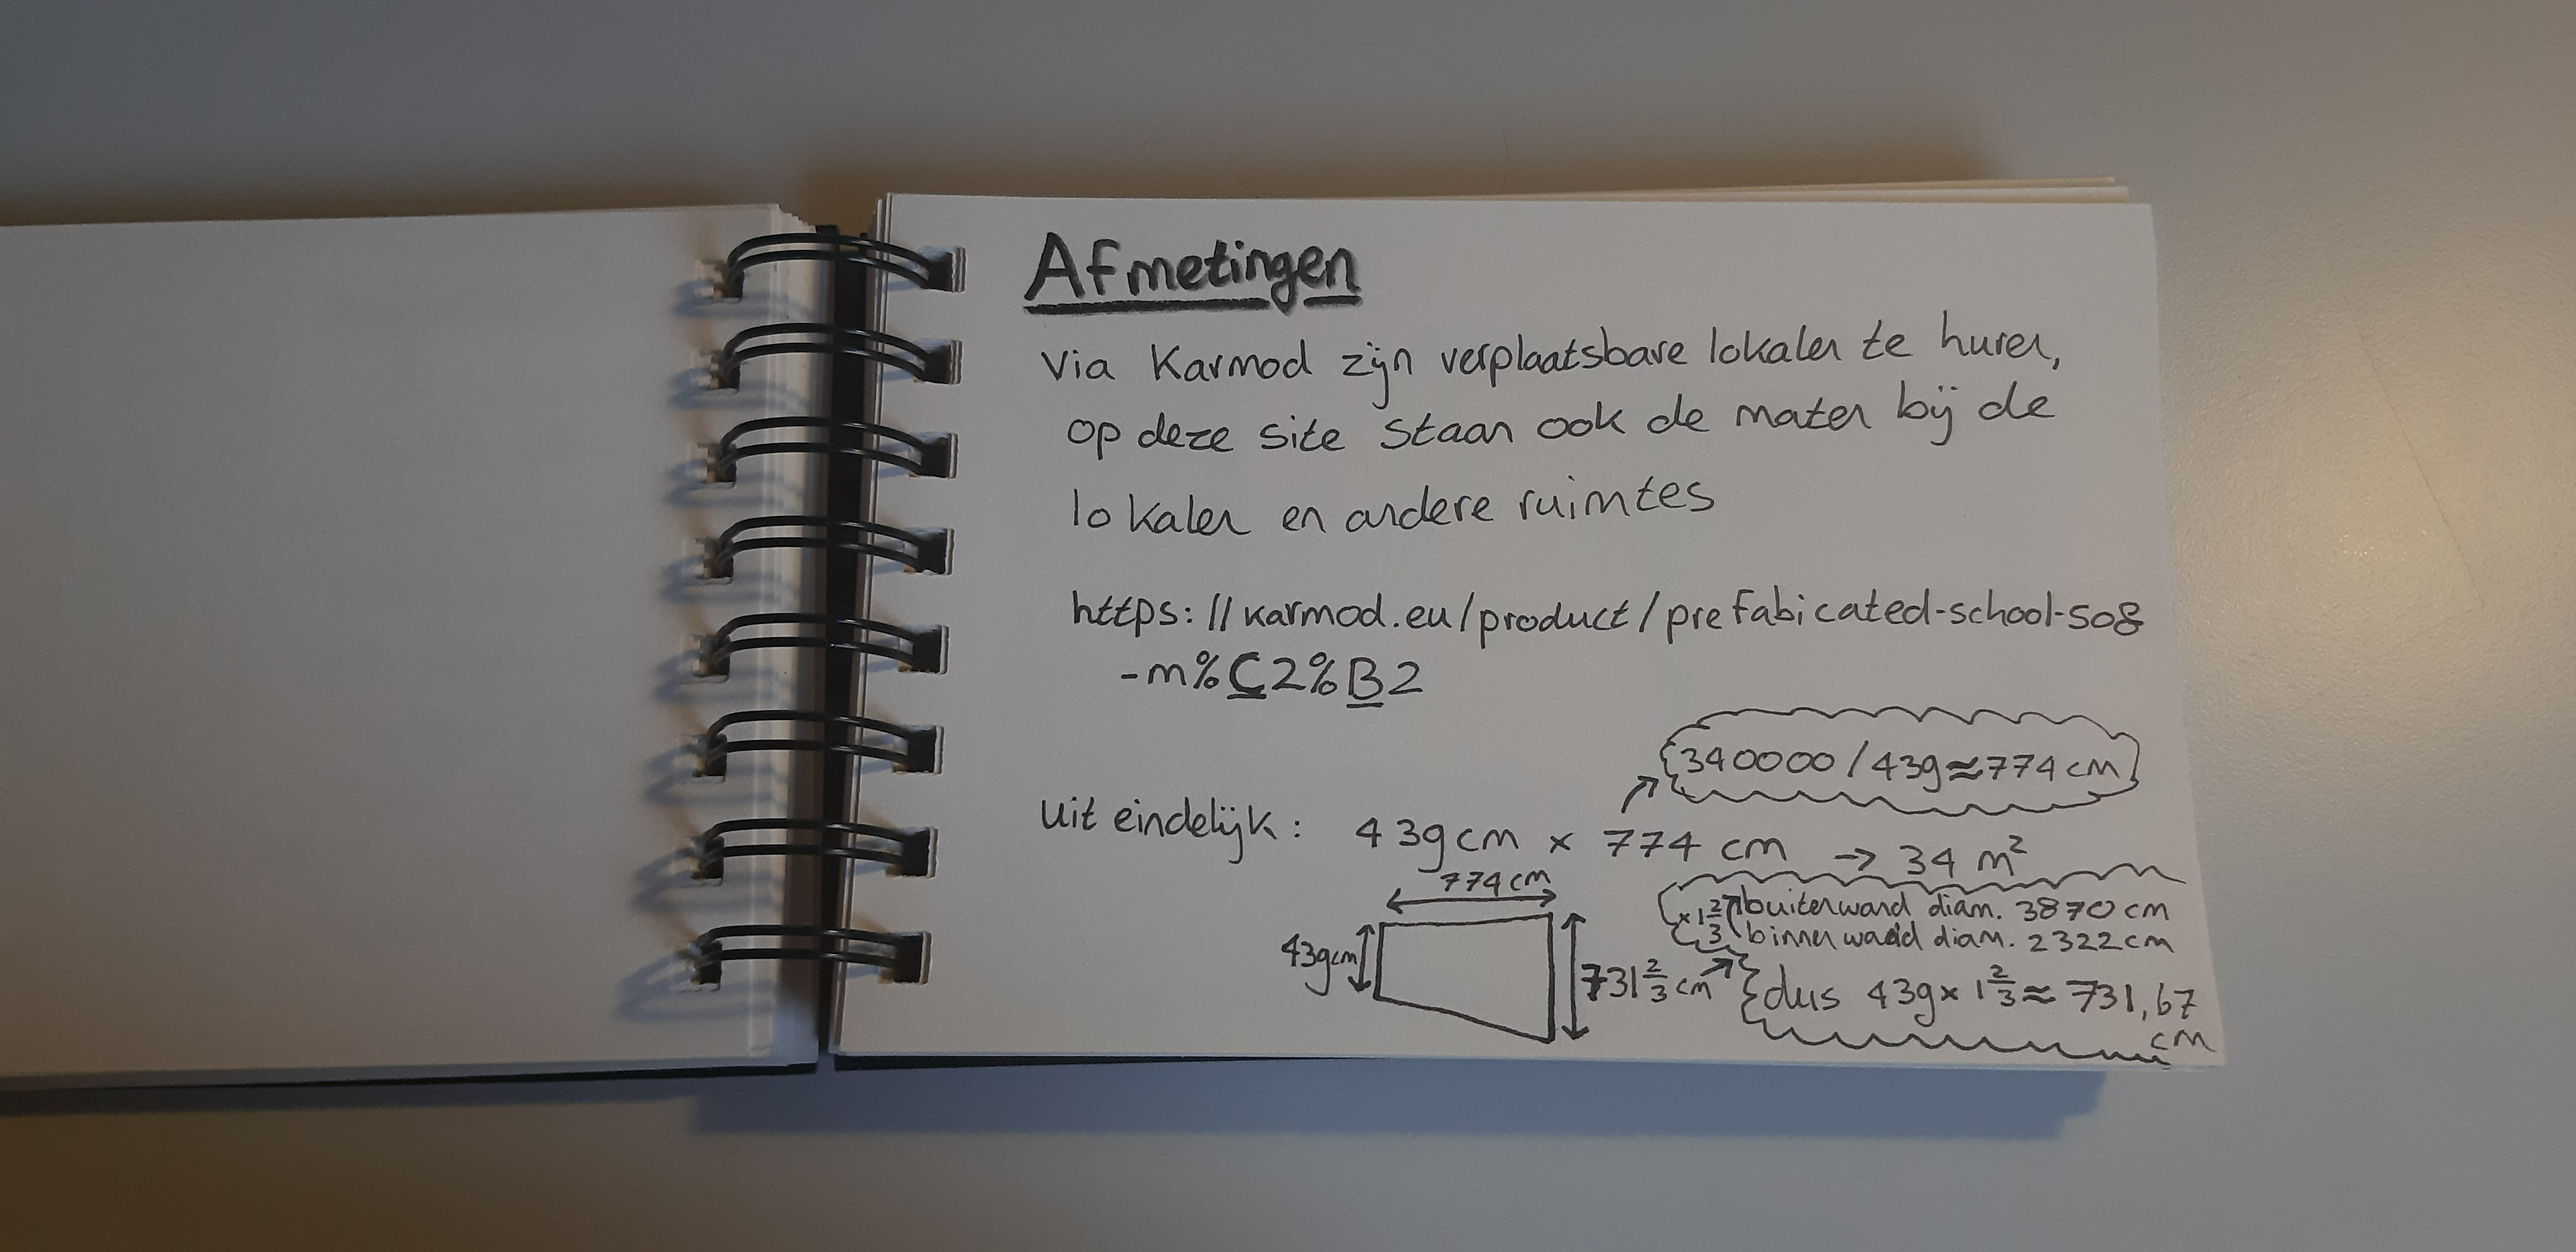 Afmetingen
Via Karmod zijn verplaatsbare lokalen te huren,
op deze site staan ook de maten bij de
lokalen en andere ruimtes
https://karmod.eu/product/prefabricated-school-508
-m%C2%B2
340000/439≈774cm
Uiteindelijk: 439cm × 774 cm → 34 m²
774cm
×1 2/3 buitenwand diam. 3870 cm
binnenwand diam. 2322cm
439cm
731 2/3 cm
dus 439×1 2/3 ≈ 731,67
cm